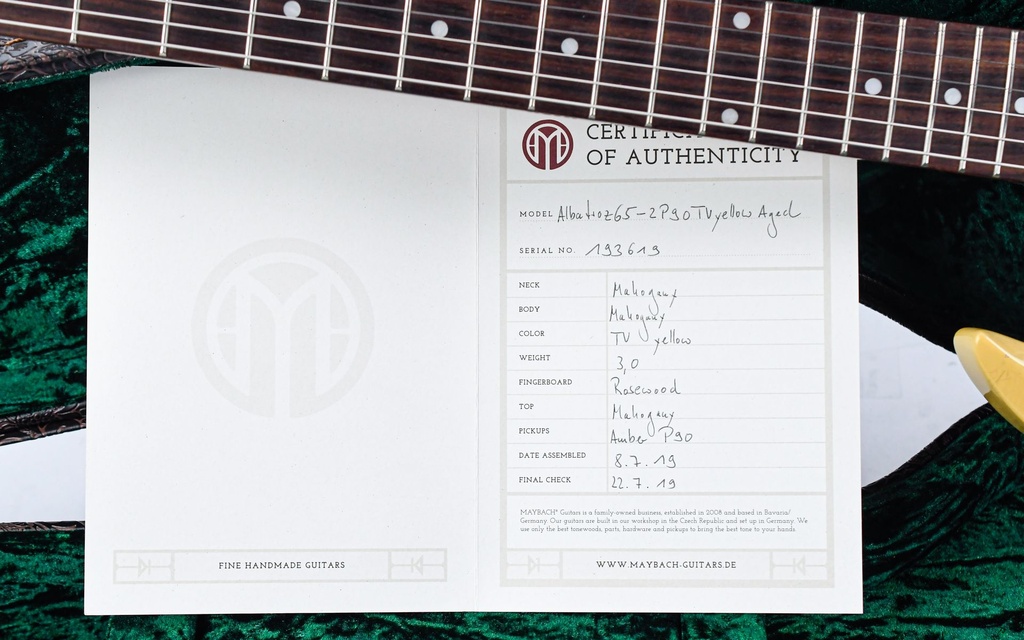 OF AUTHENTICITY
MODEL Albatroz65-2P90 TV yellow Aged
SERIAL NO. 193619
NECK Mahogany
BODY Mahogany
COLOR TV yellow
WEIGHT 3,0
FINGERBOARD Rosewood
TOP Mahogany
PICKUPS Amber P90
DATE ASSEMBLED 8.7.19
FINAL CHECK 22.7.19
MAYBACH® Guitars is a family-owned business, established in 2008 and based in Bavaria/
Germany. Our guitars are built in our workshop in the Czech Republic and set up in Germany. We
use only the best tonewoods, parts, hardware and pickups to bring the best tone to your hands.
FINE HANDMADE GUITARS
WWW.MAYBACH-GUITARS.DE